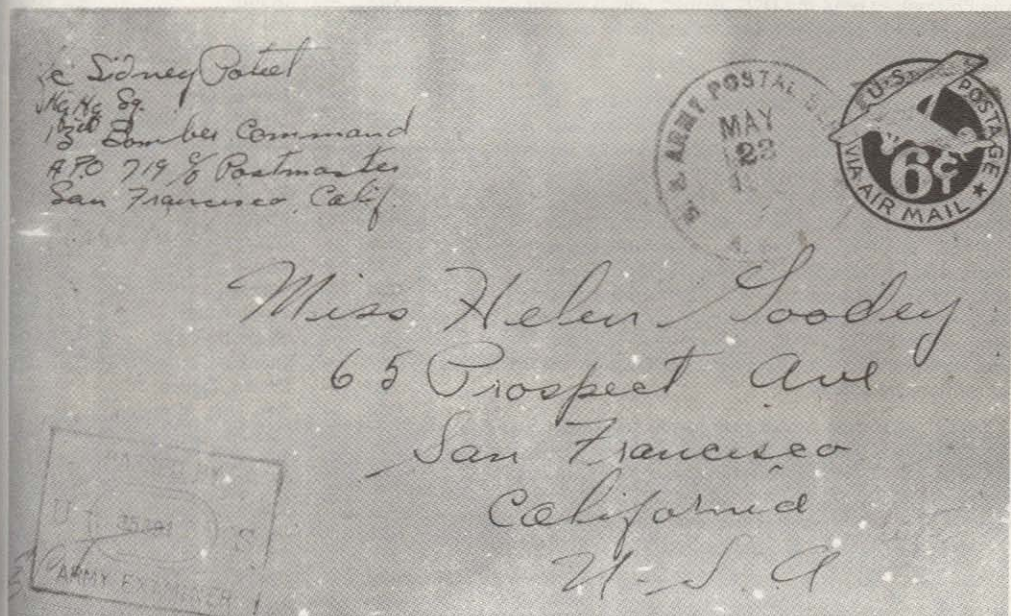 Sidney Poteet
Hq Hq Sq.
13th Bomber Command
A.P.O 719 c/o Postmaster
San Francisco, Calif.
U.S. ARMY POSTAL
MAY
23
U.S. POSTAGE
6¢
VIA AIR MAIL
Miss Helen Goodey
65 Prospect Ave
San Francisco
California
U-S A
PASSED BY
U S
ARMY EXAMINER